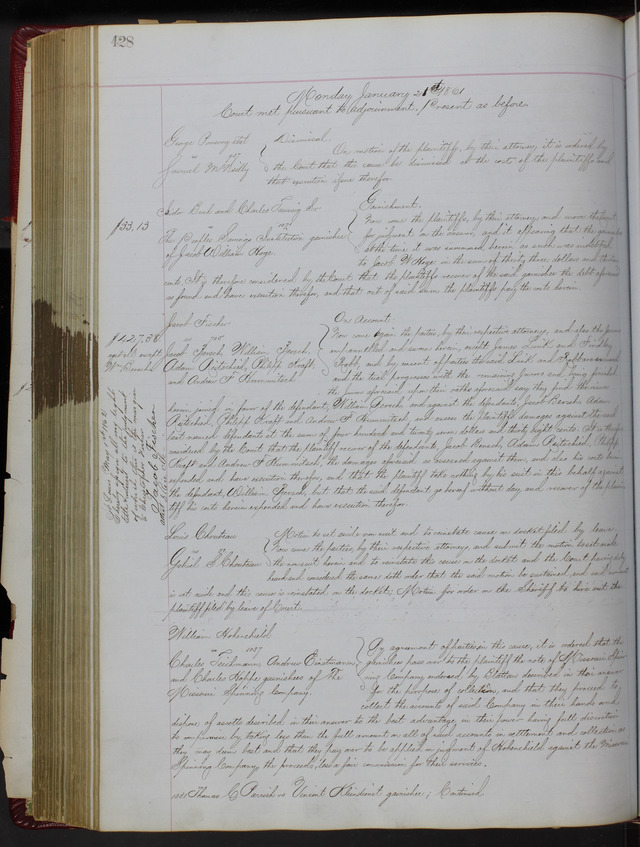 428
Monday January 21st 1861
Court met pursuant to adjournment. Present as before.
George
vs
Samuel
Dismissal.
On motion of the plaintiffs, by their attorney, it is ordered by
the Court that this cause be dismissed at the costs of the plaintiffs and
that execution issue therefor.
$33,13
and Charles
vs
The Peoples Savings Institution garnishee
of Jacob William Hoge
Garnishment.
Now come the plaintiffs, by their attorney and move the Court
for judgment on the answer, and it appearing that the garnishee
at the time it was summoned herein as such was indebted
to Jacob W Hoge in the sum of thirty three dollars and thirteen
cents, It is therefore considered by the Court that the plaintiffs recover of the said garnishee the debt aforesaid
so found and have execution therefor, and that out of said sum the plaintiffs pay the costs herein.
$427,38
Jacob Fischer
vs
Jacob William
Adam Philipp Kraft
and Andrew F
On Account.
Now come again the parties, by their respective attorneys, and also the jurors
empannelled and sworn herein, except James and
and by consent of parties the said
and the trial progresses with the remaining jurors and being finished
the jurors aforesaid upon their oaths aforesaid say they find the issue
herein joined in favor of the defendant, William and against the defendants, Jacob Adam
Philipp Kraft and Andrew F and assess the plaintiffs damages against the said
last named defendants at the sum of four hundred and twenty seven dollars and thirty eight cents. It is therefore
considered by the Court that the plaintiff recover of the defendants, Jacob Adam Philipp
Kraft and Andrew F the damages aforesaid so assessed against them, and also his costs herein
expended and have execution therefor, and that the plaintiff take nothing by his suit in this behalf against
the defendant, William but that the said defendant go hereof without day and recover of the plain-
tiff his costs herein expended and have execution therefor.
St Louis
Jacob Fischer
Louis Chouteau
vs
F Chouteau
Motion to set aside non suit and to reinstate cause on docket filed by leave.
Now come the parties, by their respective attorneys, and submit the motion to set aside
the nonsuit herein and to reinstate this cause on the docket and the Court having duly
heard and considered the same doth order that the said motion be sustained, and said nonsuit
is set aside and this cause is reinstated on the docket; Motion for order on the Sheriff to
plaintiff filed by leave of Court.
William
vs
Charles Teichmann, Andrew
and Charles Hoppe garnishees of The
Missouri Spinning Company.
By agreement of parties in this cause, it is ordered that the
garnishees pass over to the plaintiff the note of Missouri Spin-
ning Company endorsed by described in their answer
for the purpose of collection, and that they proceed to
collect the accounts of said Company in their hands and
dispose of assets described in their answer to the best advantage, in their power having full discretion
to compromise by taking less than the full amount on all of said accounts in settlement and collection as
they may deem best and that they pay over to be applied on judgment of against the Missouri
Spinning Company the proceeds, less a fair commission for their services.
Thomas C Parrish vs Vincent garnishee; Continued